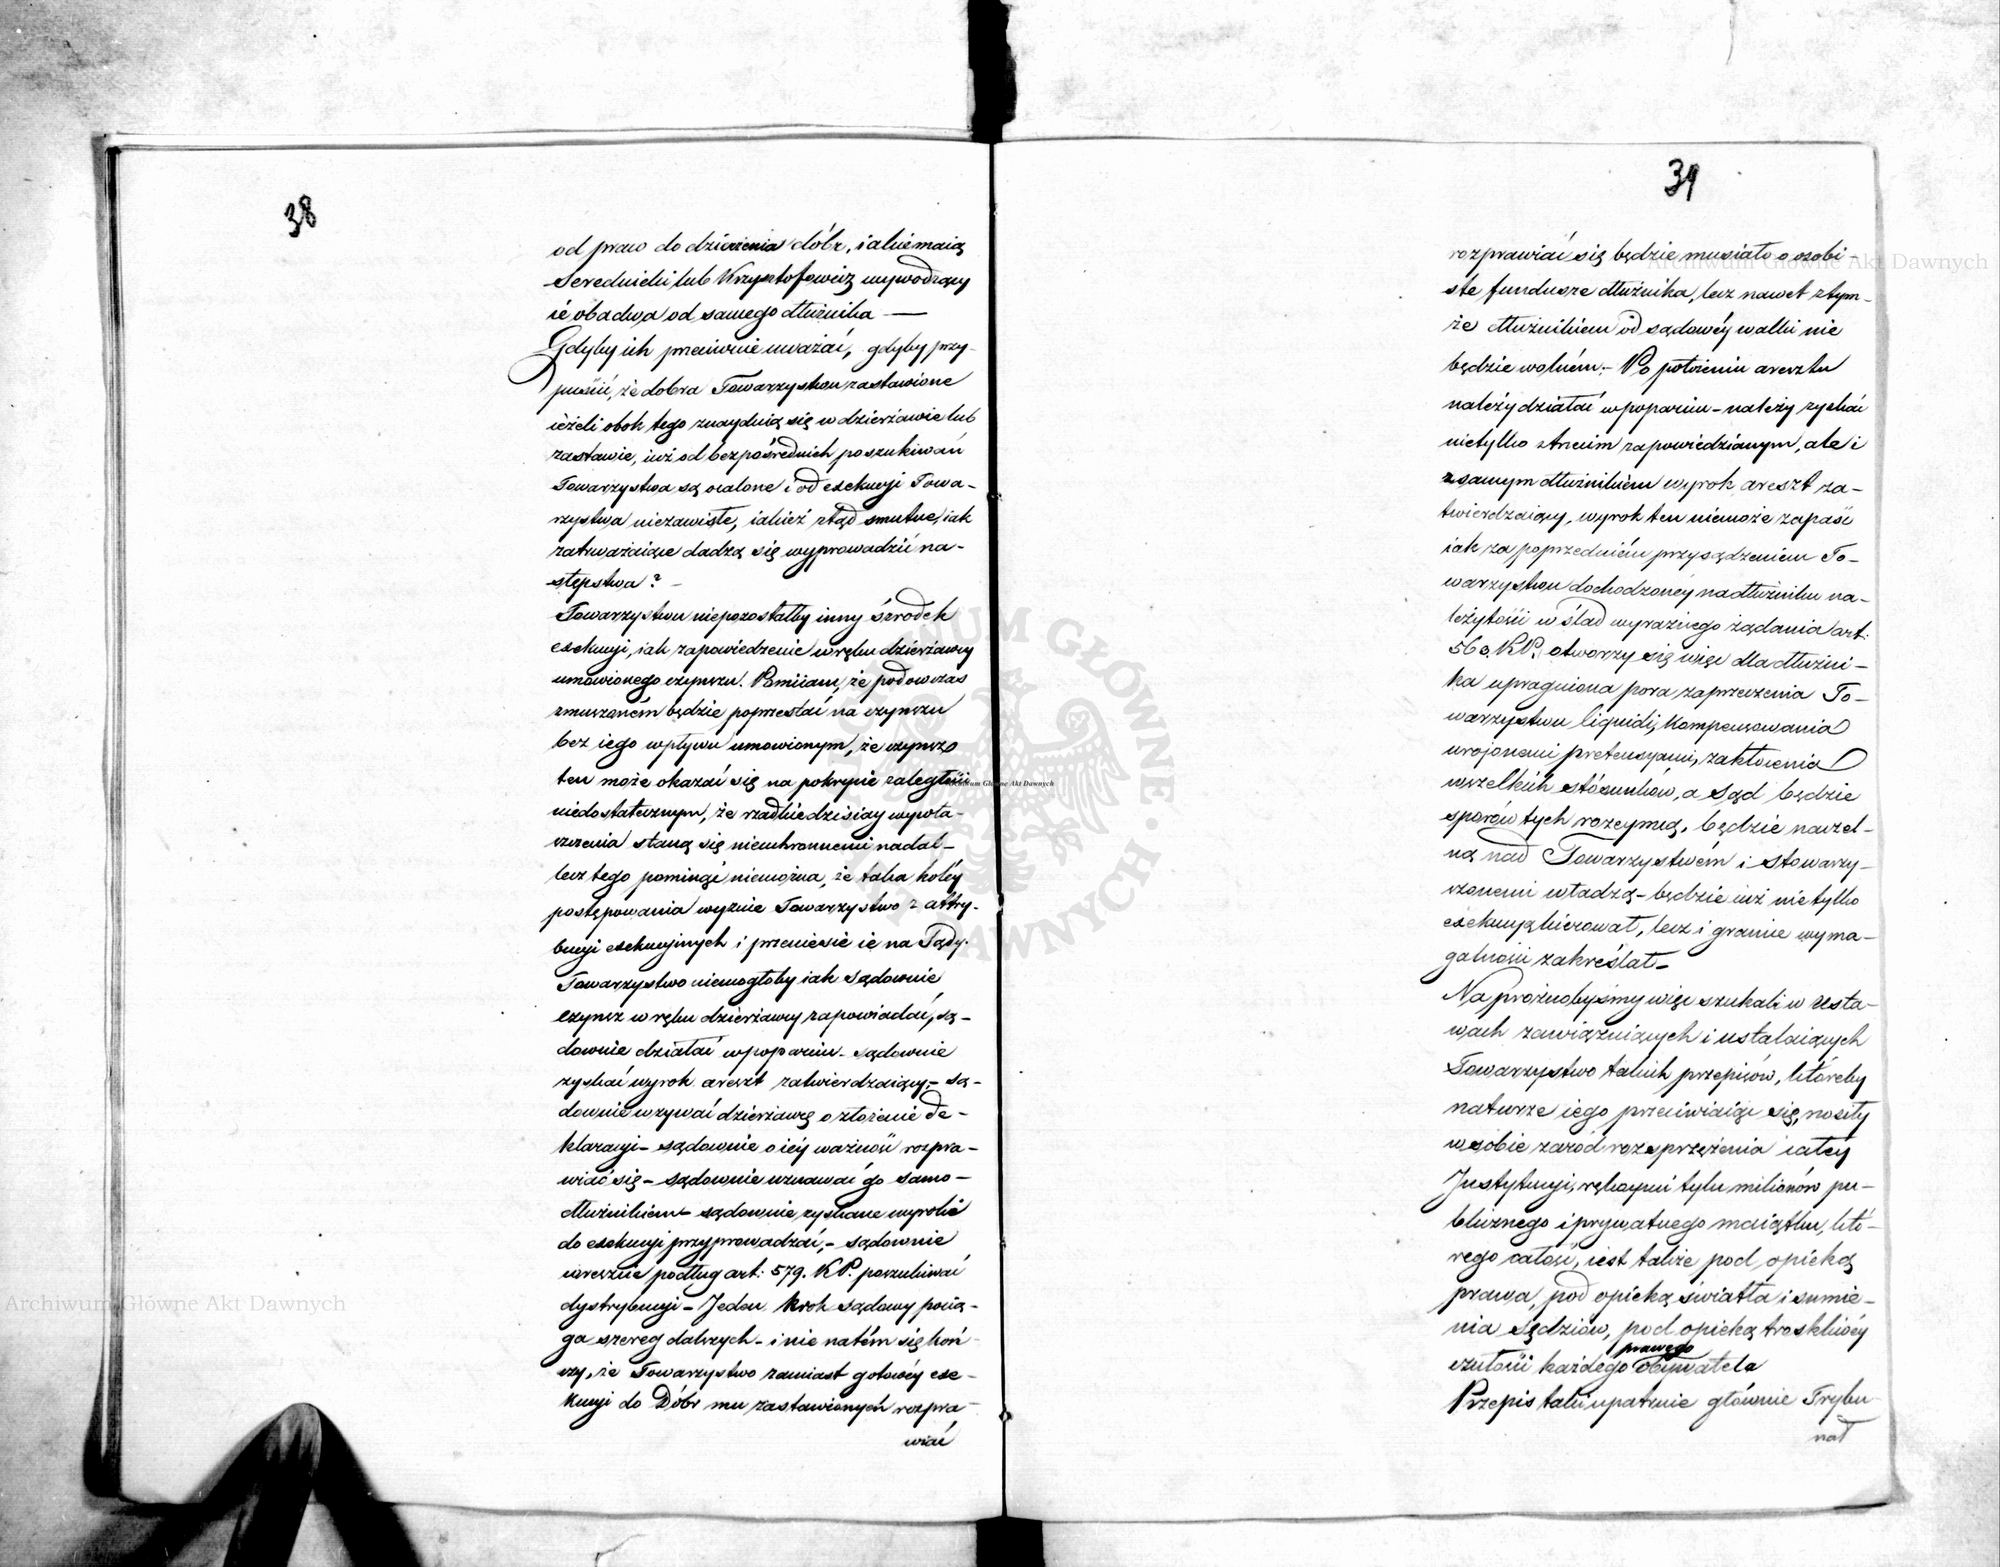 38
od praw do dzierżenia dóbr, iakie maią
Serednicki lub Krzysztofowicz wywodzący
ie obadwa od samego dłużnika —
Gdyby ich przeciwnie uważać, gdyby przy-
puścić, że dobra Towarzystwu zastawione
ieżeli obok tego znaydуią się w dzierżawie lub
zastawie, iuż od bezpośrednich poszukiwań
Towarzystwa są ocalone i od exekucyi Towa-
rzystwa niezawisłe, iakież ztąd smutne, iak
zatrważaiące dadzą się wyprowadzić na-
stępstwa? —
Towarzystwu niepozostałby inny środek
exekucyi, iak zapowiedzenie w ręku dzierżawcy
umówionego czynszu. Pomiiam, że podówczas
zmuszoném będzie poprzestać na czynszu
bez iego wpływu umówionym, że czynsz
ten może okazać się na pokrycie zaległości
niedostatecznym, że rzadkie dzisiay wywła-
szczenia staną się nieuchronnemi nadal —
lecz tego pominąć niemożna, że taka koléy
postępowania wyzuie Towarzystwo z attry-
bucyi exekucyinych i przeniesie ie na Sądy.
Towarzystwo niemogłoby iak sądownie
czynsz w ręku dzierżawcy zapowiadać, są-
downie działać w poparciu — sądownie
zyskać wyrok areszt zatwierdzaiący, — są-
downie wzywać dzierżawcę o złożenie de-
klaracyi — sądownie o iéy ważności rozpra-
wiać się — sądownie uznawać go samo-
dłużnikiem — sądownie zyskane wyroki
do exekucyi przyprowadzać, — sądownie
wreszcie podług art: 579. KP. poszukiwać
dystrybucyi — Jeden krok sądowy pocią-
ga szereg dalszych — i nie na tém się koń-
czy, że Towarzystwo zamiast gotowéy exe-
kucyi do Dóbr mu zastawionych rozpra-
wiać
39
rozprawiać się będzie musiało o osobi-
ste fundusze dłużnika, lecz nawet z tym-
że dłużnikiem od sądowéy walki nie
będzie wolném. — Po położeniu aresztu
należy działać w poparciu — należy zyskać
nietylko z trzecim zapowiedzianym, ale i
z samym dłużnikiem wyrok areszt za-
twierdzaiący, wyrok ten niemoże zapaść
iak za poprzedniém przysądzeniem To-
warzystwu dochodzonéy na dłużniku na-
leżytości w ślad wyraźnego żądania art:
560. KP. otworzy się więc dla dłużni-
ka upragniona pora zaprzeczenia To-
warzystwu liquidi, kompensowania
urojonemi pretensyami, zakłócenia
wszelkich stosunków, a Sąd będzie
sporów tych rozeymcą, będzie naczel-
ną nad Towarzystwém i stowarzy-
szonemi władzą — będzie iuż nietylko
exekucyą kierował, lecz i granice wyma-
galności zakréślał —
Na próżnobyśmy więc szukali w Usta-
wach zawiązuiących i ustalaiących
Towarzystwo takich przepisów, któreby
naturze iego przeciwiaiąc się, nosiły
w sobie zaród rozsprzężenia całéy
Jnstytucyi, rękoymi tylu milionów pu-
blicznego i prywatnego maiątku, któ-
rego całość, iest także pod opieką
prawa, pod opieką światła i sumie-
nia Sędziów, pod opieką troskliwéy
czułości każdego prawego obywatela
Przepis taki upatruie głównie Trybu-
nał
Archiwum Główne Akt Dawnych
Archiwum Główne Akt Dawnych
Archiwum Główne Akt Dawnych
ARCHIWUM GŁÓWNE AKT DAWNYCH